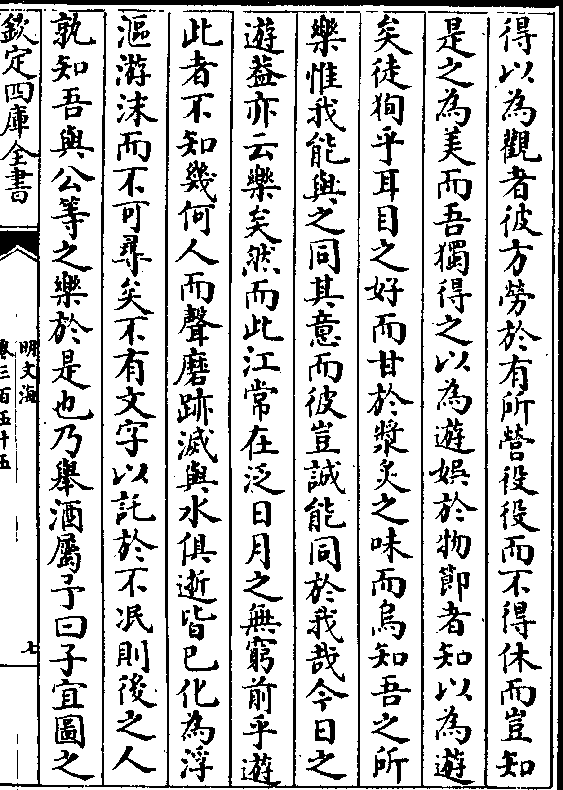 得以為觀者彼方勞於有所營役役而不得休而豈知
是之為美而吾獨得之以為遊娯於物節者知以為遊
矣徒狥乎耳目之好而甘於漿炙之味而烏知吾之所
樂惟我能與之同其意而彼豈誠能同於我哉今日之
遊葢亦云樂矣然而此江常在泛日月之無窮前乎遊
此者不知幾何人而聲磨跡滅與水俱逝皆已化為浮
漚游沫而不可尋矣不有文字以託於不泯則後之人
孰知吾與公等之樂於是也乃舉酒屬予曰子宜圖之
欽定四庫全書
明文海
卷三百五十五
七